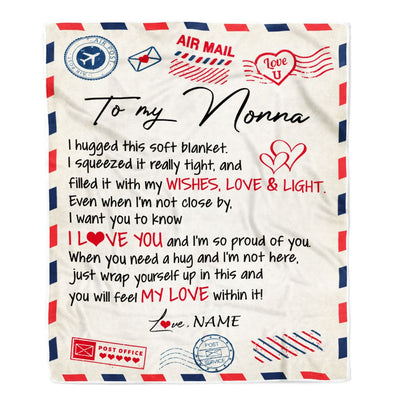 AIR MAIL
Love
U
To my Nonna
I hugged this soft blanket.
I squeezed it really tight, and
filled it with my WISHES, LOVE & LIGHT.
Even when I'm not close by,
I want you to know
I L❤VE YOU and I'm so proud of you.
When you need a hug and I'm not here,
just wrap yourself up in this and
you will feel MY LOVE within it!
Love, NAME
POST OFFICE
POST
SERVICE